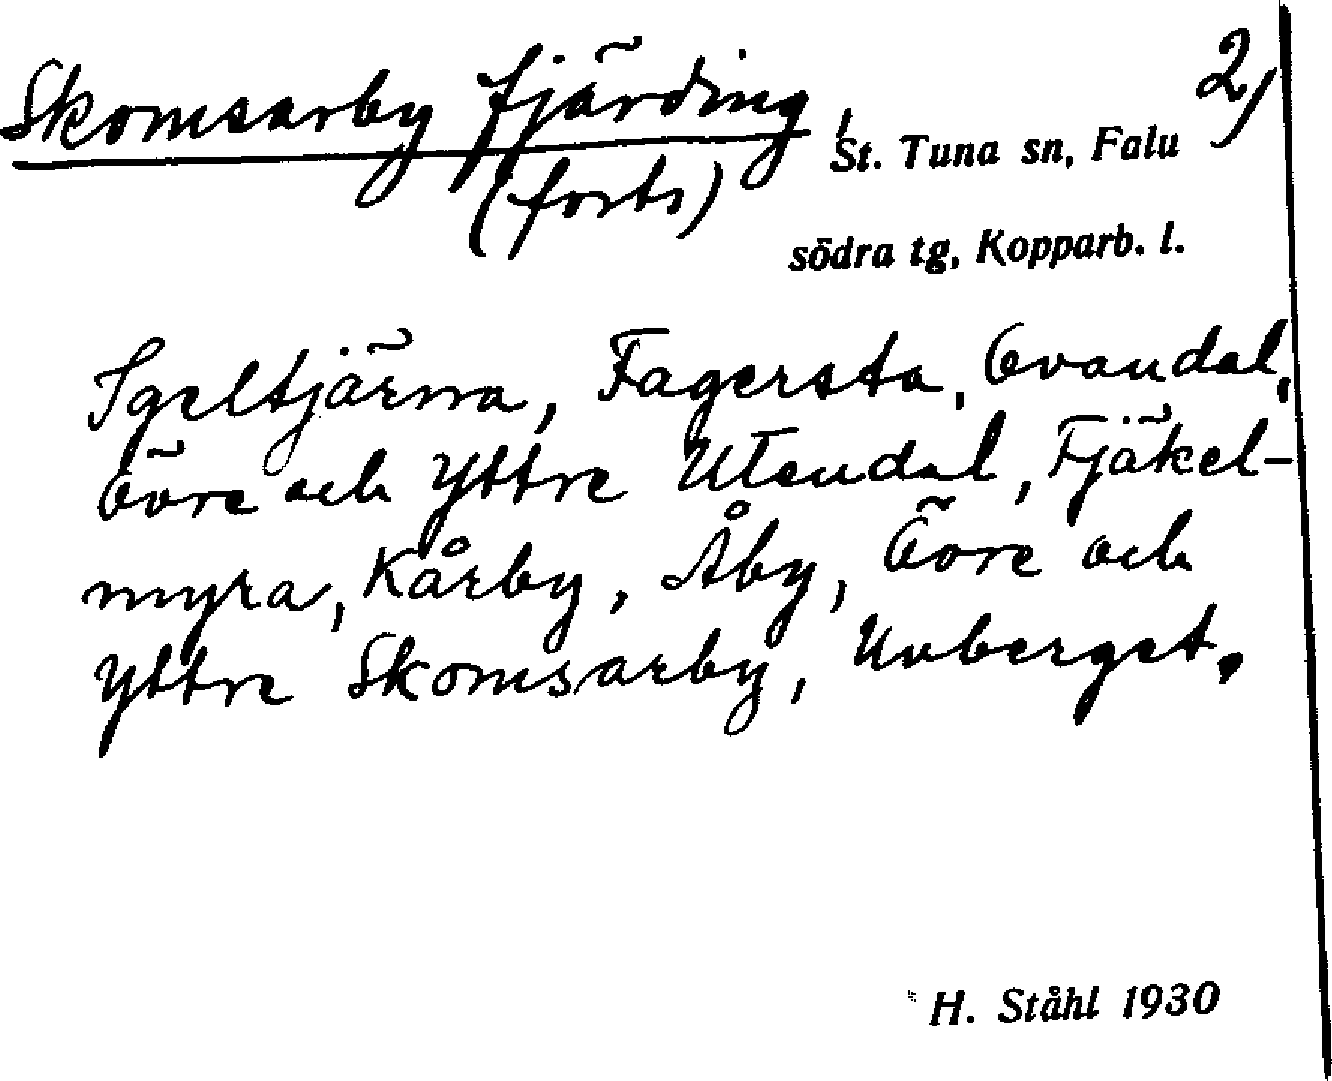 Skomsarby fjärding, 2/
St. Tuna sn, Falu
(forts)
södra tg, Kopparb. l.
Igeltjärna, Fagersta, Ovandal,
Övre och Yttre Utendal, Fjäkel-
myra, Kårby, Åby, Övre och
Yttre Skomsarby, Uvberget.
H. Ståhl 1930